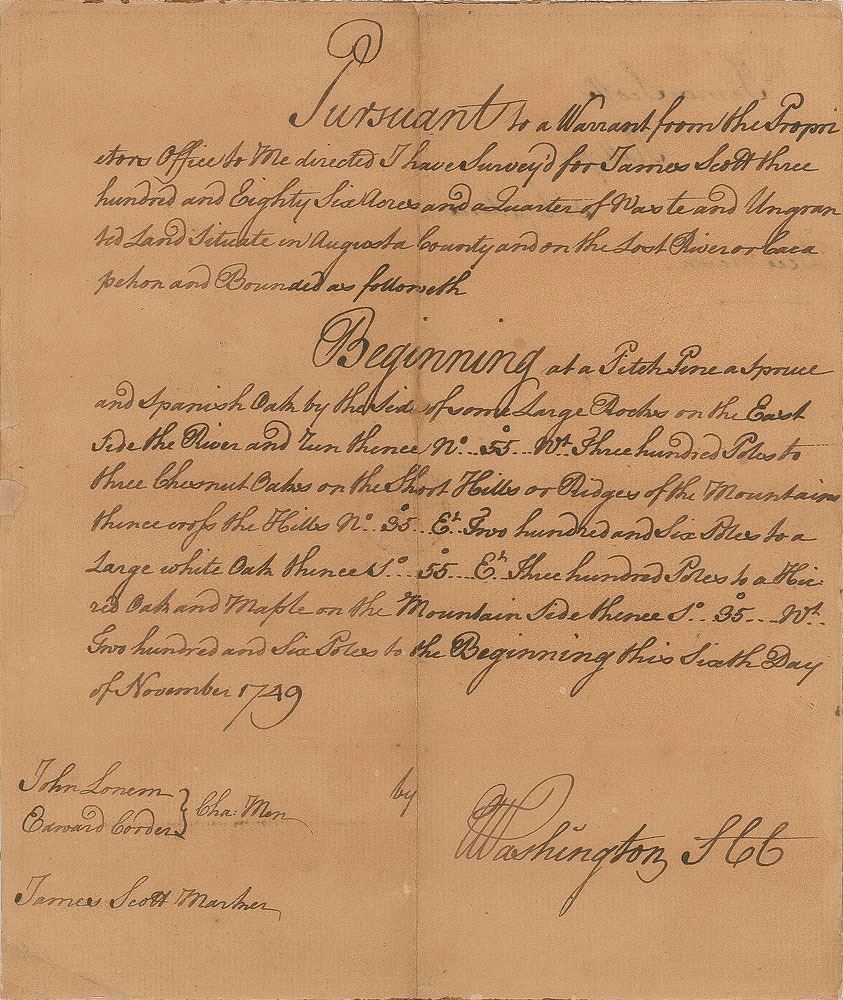 Pursuant to a Warrant from the Propri
etors Office to Me directed I have Survey'd for James Scott three
hundred and Eighty Six Acres and a Quarter of Waste and Ungran
ted Land Situate in Augusta County and on the Lost River or Caca
pehon and Bounded as followeth
Beginning at a Pitch Pine a Spruce
and Spanish Oak by the Side of some Large Rocks on the East
Side the River and run thence No. 55° Wt. Three hundred Poles to
three Chesnut Oakes on the Short Hills or Ridges of the Mountains
thence cross the Hills No. 35° Et. Two hundred and Six Poles to a
Large white Oak thence So. 55° Et. Three hundred Poles to a Hic
red Oak and Maple on the Mountain Side thence So. 35° Wt.
Two hundred and Six Poles to the Beginning this Sixth Day
of November 1749
John Lonem
Edward Corder } Cha: Men
by
Washington SCC
James Scott Marker